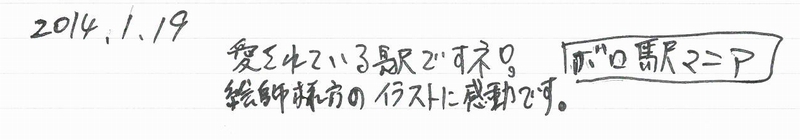 2014.1.19
愛されている駅ですネ。 ボロ駅マニア
絵師様方のイラストに感動です。